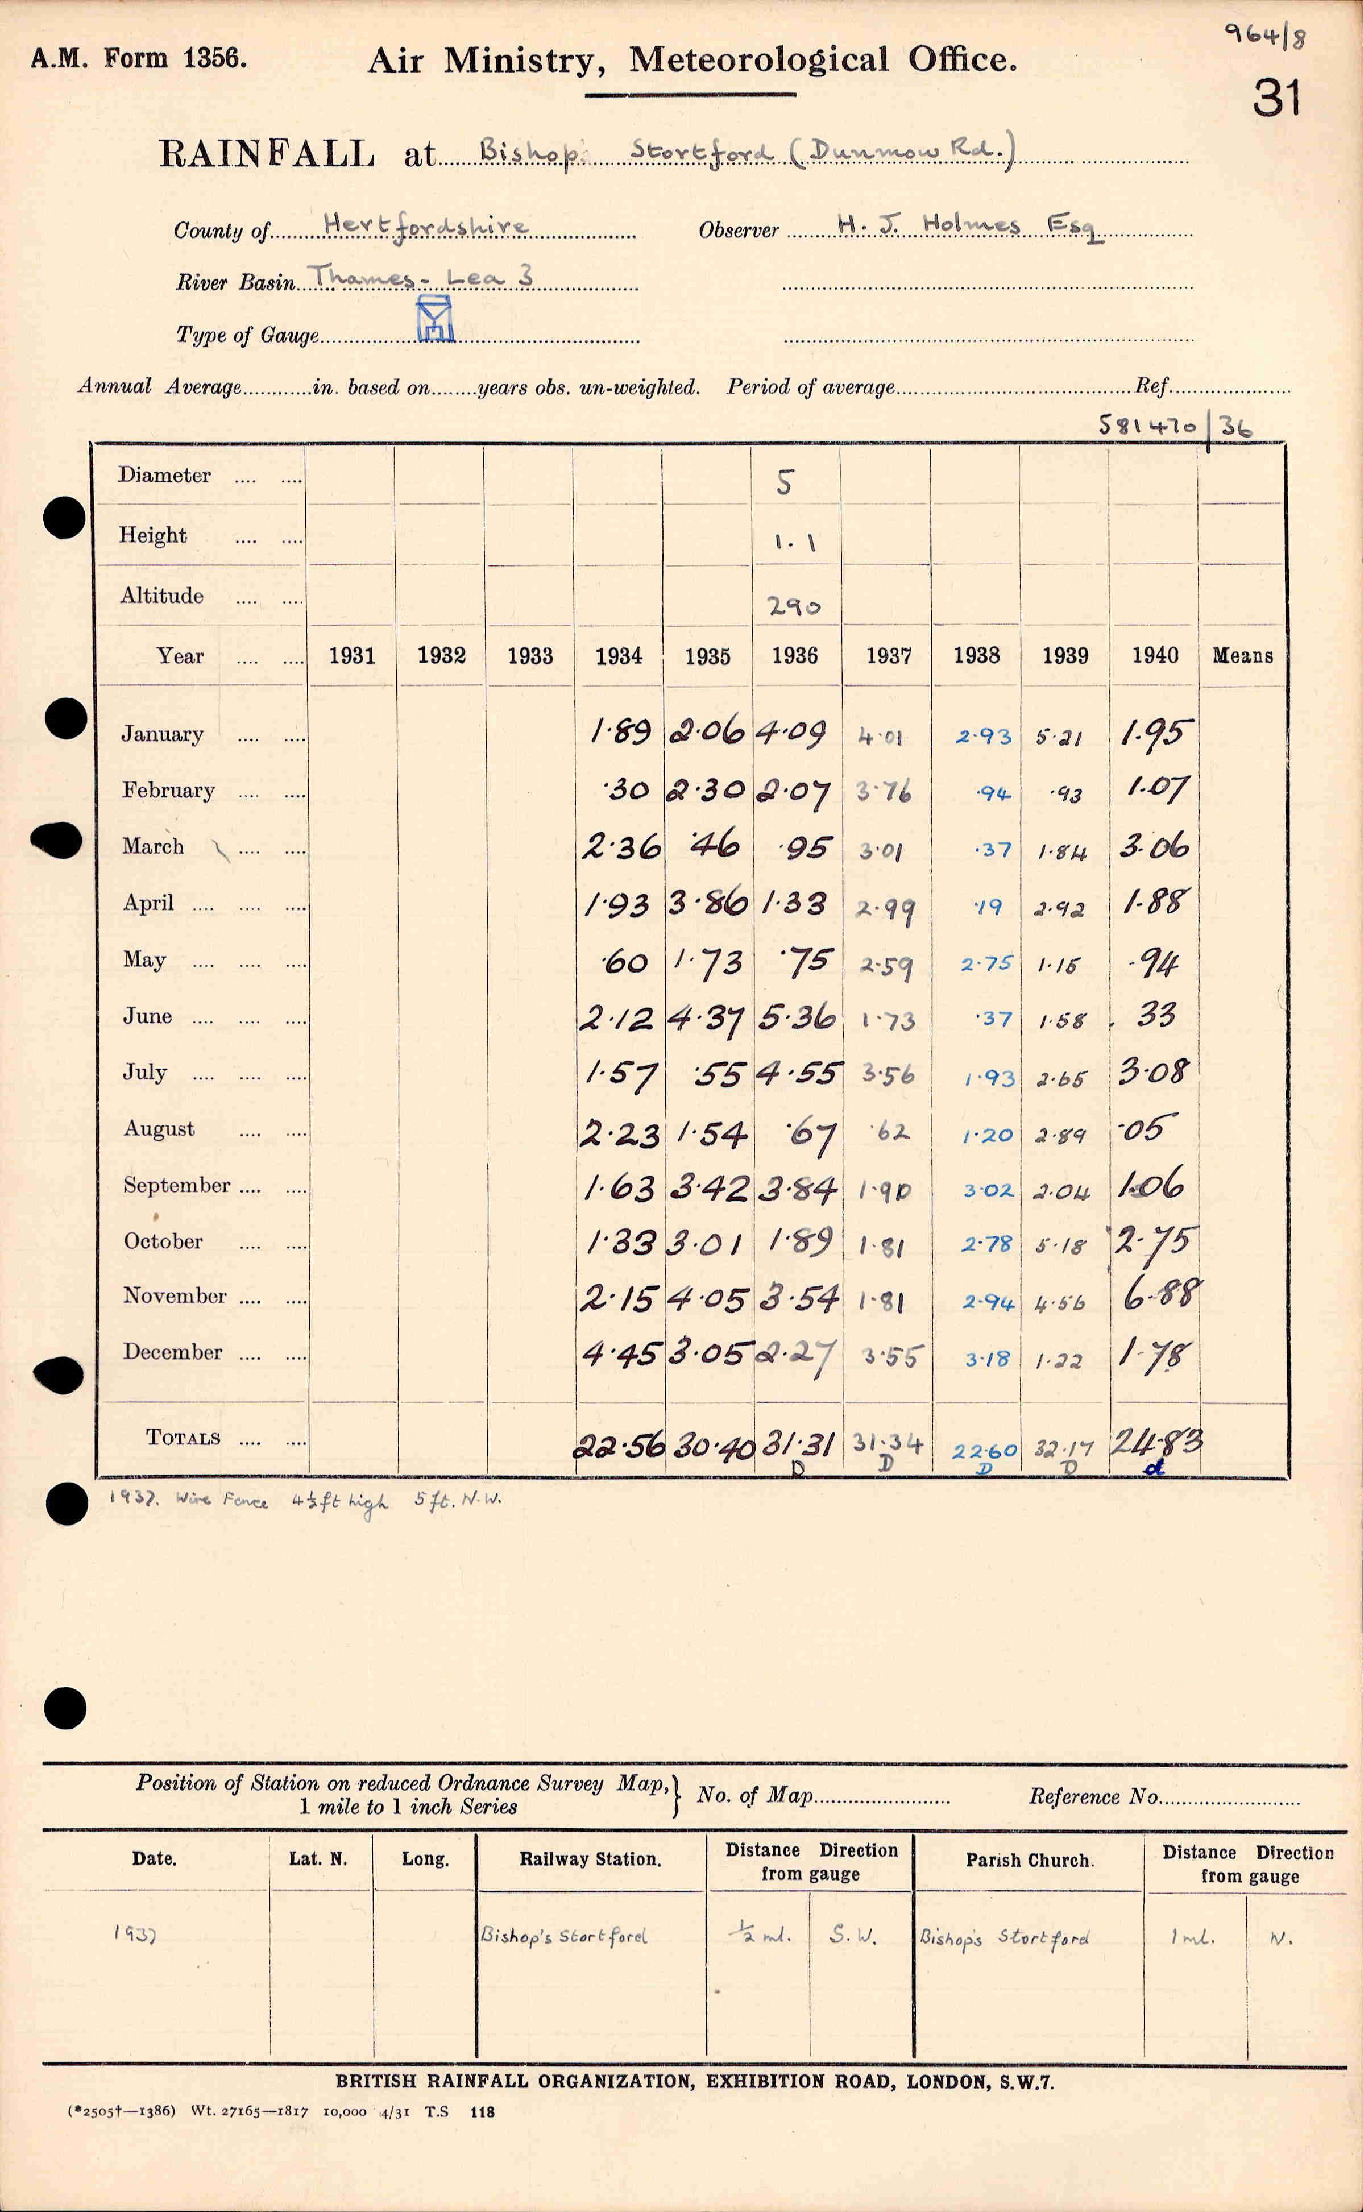 964/8
A.M. Form 1356. Air Ministry, Meteorological Office.
31
RAINFALL at Bishop's Stortford (Dunmow Rd.)
County of Hertfordshire Observer H. J. Holmes Esq
River Basin Thames - Lea 3
Type of Gauge M
Annual Average in. based on years obs. un-weighted. Period of average Ref.
581470/36
Diameter 5
Height 1.1
Altitude 290
Year 1931 1932 1933 1934 1935 1936 1937 1938 1939 1940 Means
January 1.89 2.06 4.09 4.01 2.93 5.21 1.95
February .30 2.30 2.07 3.76 .94 .93 1.07
March 2.36 .46 .95 3.01 .37 1.84 3.06
April 1.93 3.86 1.33 2.99 .19 2.92 1.88
May .60 1.73 .75 2.59 2.75 1.15 .94
June 2.12 4.37 5.36 1.73 .37 1.58 .33
July 1.57 .55 4.55 3.56 1.93 2.65 3.08
August 2.23 1.54 .67 .62 1.20 2.89 .05
September 1.63 3.42 3.84 1.90 3.02 2.04 1.06
October 1.33 3.01 1.89 1.81 2.78 5.18 2.75
November 2.15 4.05 3.54 1.81 2.94 4.56 6.88
December 4.45 3.05 2.27 3.55 3.18 1.22 1.78
TOTALS 22.56 30.40 31.31 31.34 22.60 32.17 24.83
D D D D d
1937. Wire Fence 4½ft high 5ft. N.W.
Position of Station on reduced Ordnance Survey Map, } No. of Map Reference No.
1 mile to 1 inch Series
Date. Lat. N. Long. Railway Station. Distance Direction from gauge Parish Church. Distance Direction from gauge
1937 Bishop's Stortford ½ ml. S.W. Bishop's Stortford 1 ml. N.
BRITISH RAINFALL ORGANIZATION, EXHIBITION ROAD, LONDON, S.W.7.
(*2505†—1386) Wt. 27165—1817 10,000 4/31 T.S 118